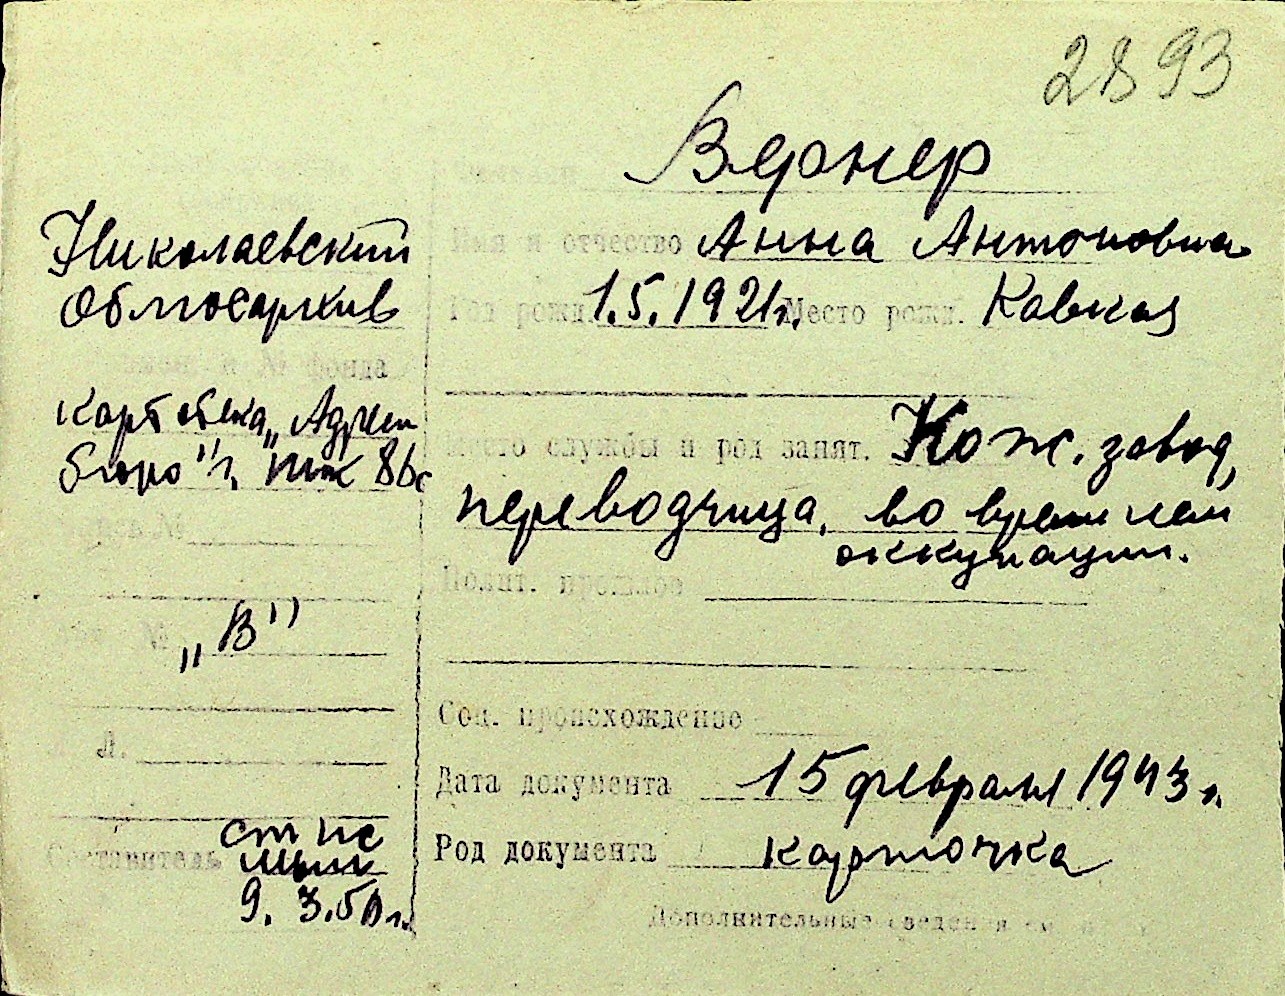 2893
Вернер
Николаевский
Облгосархив
Имя и отчество Анна Антоновна
Год рожд. 1.5.1921г. Место рожд. Кавказ
и № фонда
Картотека „Адресн
бюро"
Место службы и род занят. Кож. завод,
переводчица, во время нем
оккупации.
Полит. прошлое
№ „В"
Соц. происхождение
Л.
Дата документа 15 февраля 1943 г.
Род документа карточка
Составитель
9.3.50 г.
Дополнительные сведения